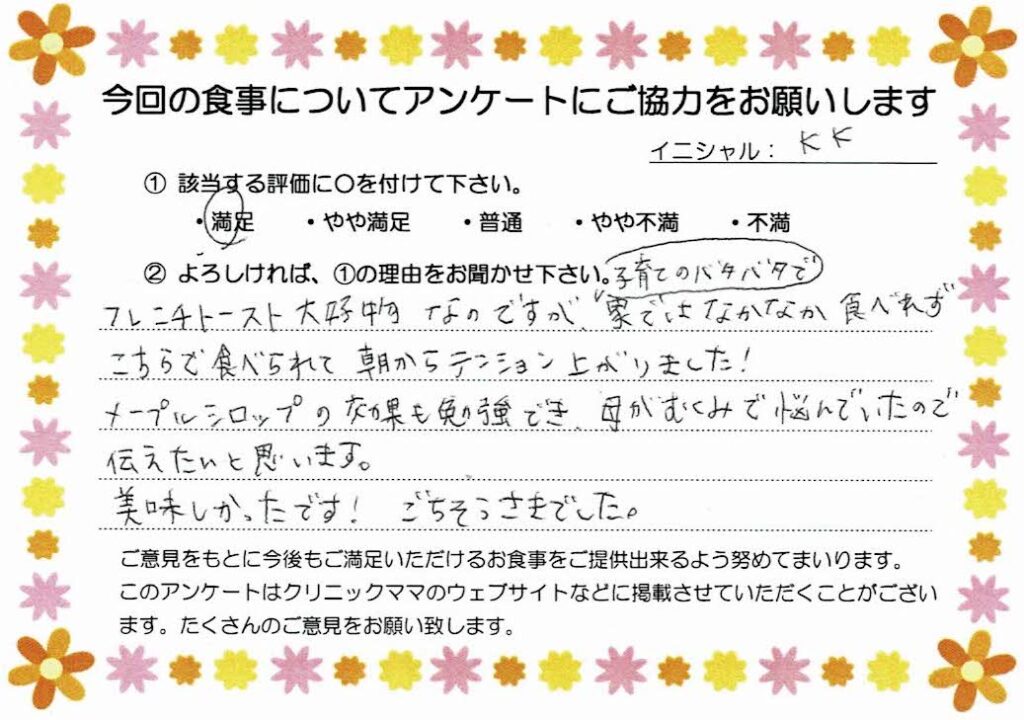 今回の食事についてアンケートにご協力をお願いします
イニシャル： KK
① 該当する評価に〇を付けて下さい。
・満足 ・やや満足 ・普通 ・やや不満 ・不満
② よろしければ、①の理由をお聞かせ下さい。
子育てのバタバタで
フレンチトースト大好物なのですが、家ではなかなか食べれず
こちらで食べられて朝からテンション上がりました！
メープルシロップの効果も勉強でき、母がむくみで悩んでいたので
伝えたいと思います。
美味しかったです！ ごちそうさまでした。
ご意見をもとに今後もご満足いただけるお食事をご提供出来るよう努めてまいります。
このアンケートはクリニックママのウェブサイトなどに掲載させていただくことがござい
ます。たくさんのご意見をお願い致します。